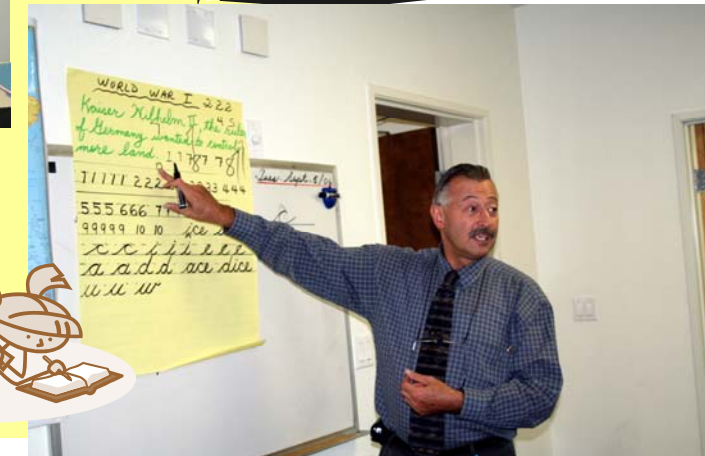 WORLD WAR I 222
Kaiser Wilhelm II, the ruler 4 5
of Germany wanted to control
more land. 1 7 8 7 7 8
11111 222 33 444
555 666 7
99999 10 10 ice
c c i i e e e
a a d d ace dice
u u w
Tues Sept. 5/06